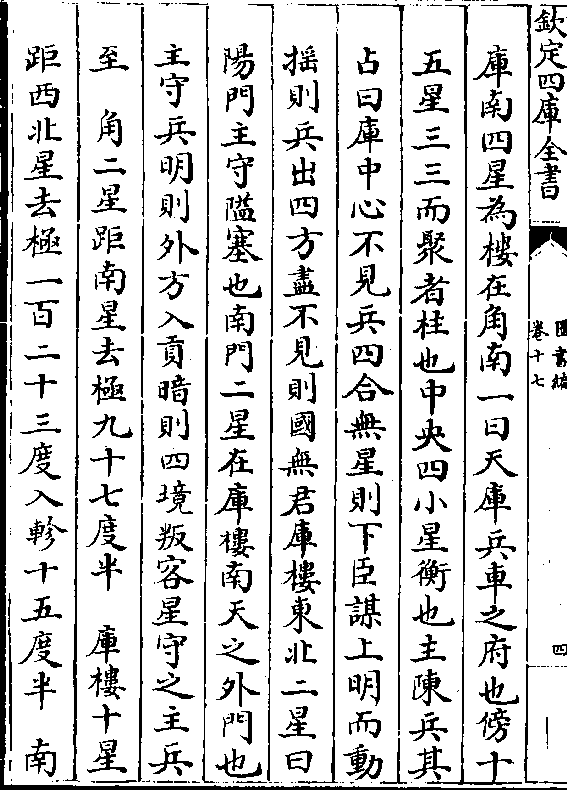 欽定四庫全書
圖書編
卷十七
四
庫南四星為樓在角南一曰天庫兵車之府也傍十
五星三三而聚者柱也中央四小星衡也主陳兵其
占曰庫中心不見兵四合無星則下臣謀上明而動
揺則兵出四方盡不見則國無君庫樓東北二星曰
陽門主守隘塞也南門二星在庫樓南天之外門也
主守兵明則外方入貢暗則四境叛客星守之主兵
至　角二星距南星去極九十七度半　庫樓十星
距西北星去極一百二十三度入軫十五度半　南